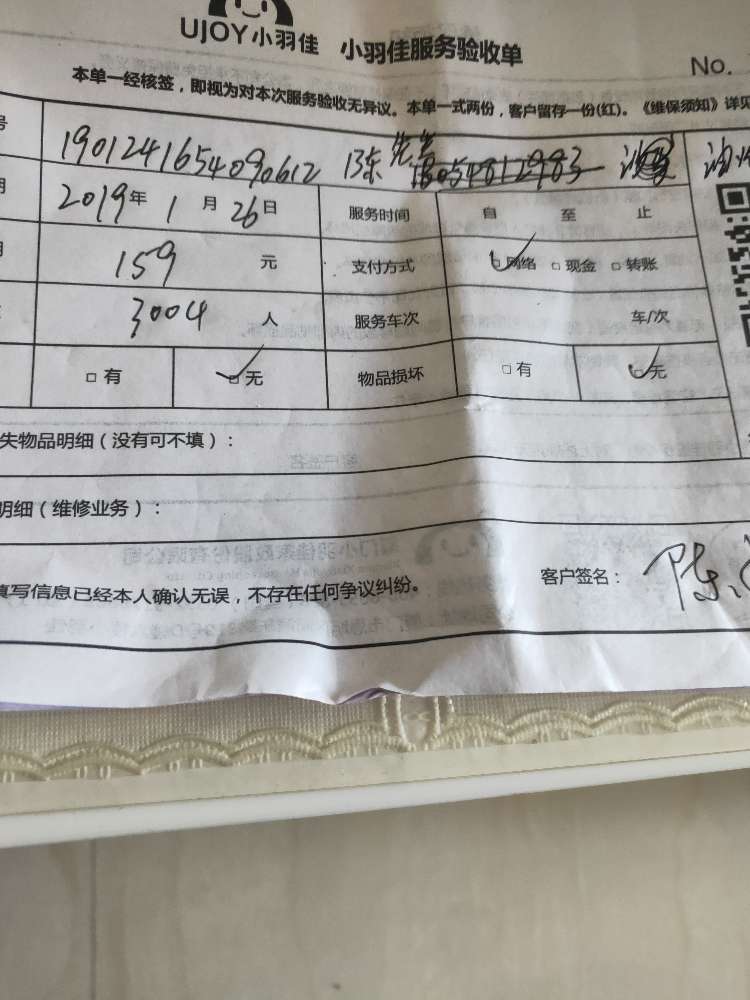 UJOY小羽佳 小羽佳服务验收单
No.
本单一经核签，即视为对本次服务验收无异议。本单一式两份，客户留存一份(红)。《维保须知》详见
号 1901241654090612 陈先生
期 2019年 1月 26日 服务时间 自 至 止
159 元 支付方式 网络 现金 转账
3004 人 服务车次 车/次
有 无 物品损坏 有 无
失物品明细（没有可不填）：
明细（维修业务）：
填写信息已经本人确认无误，不存在任何争议纠纷。 客户签名： 陈